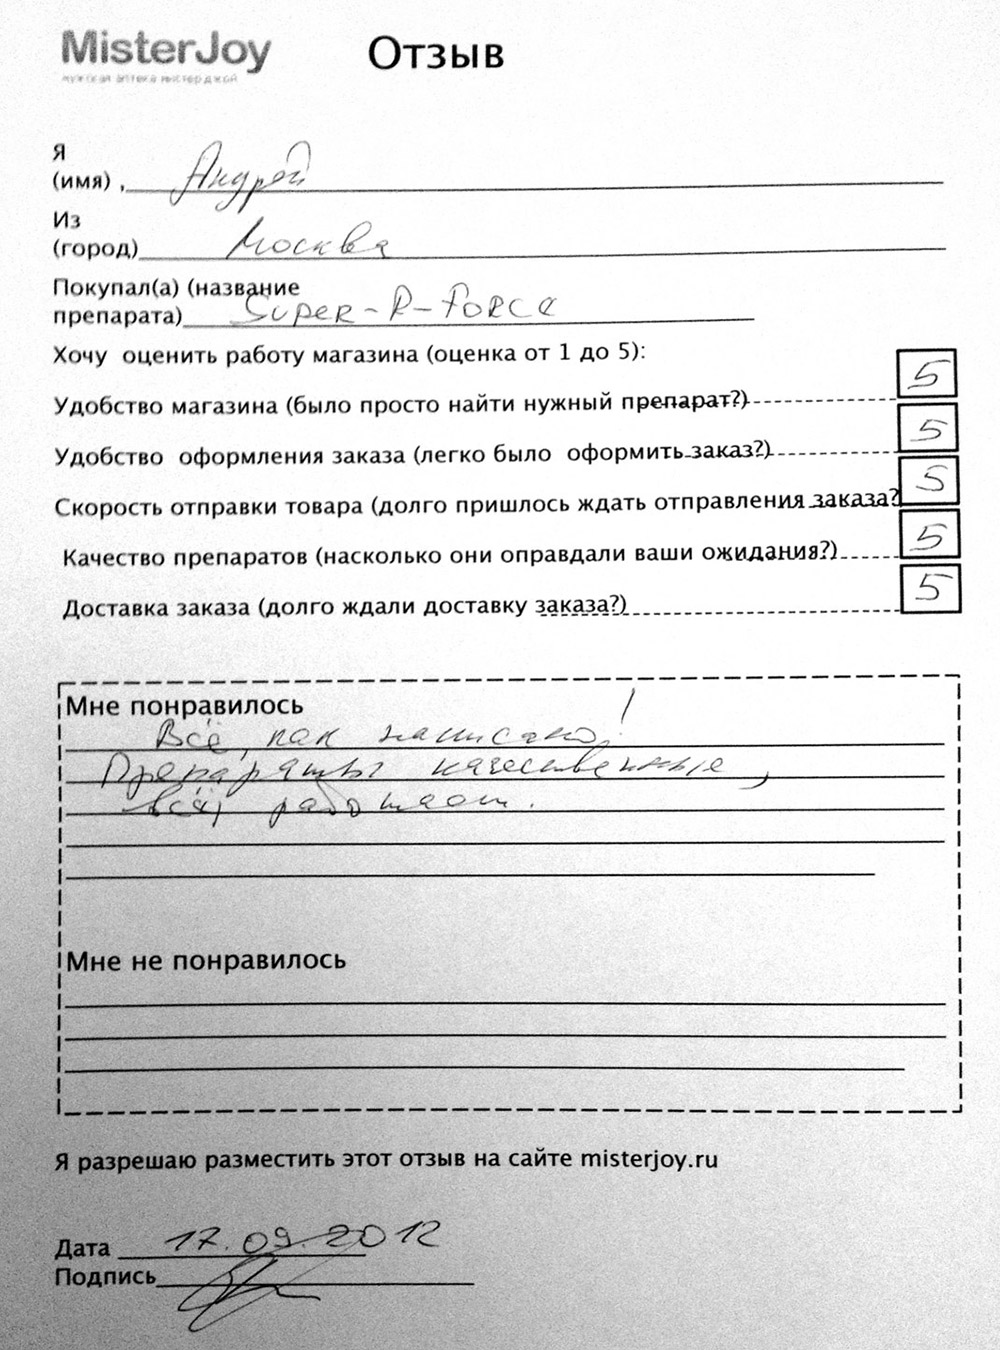 MisterJoy
мужская аптека мистер джой
Отзыв
Я
(имя) , Андрей
Из
(город) Москва
Покупал(а) (название
препарата) Super-P-Force
Хочу оценить работу магазина (оценка от 1 до 5):
Удобство магазина (было просто найти нужный препарат?) 5
Удобство оформления заказа (легко было оформить заказ?) 5
Скорость отправки товара (долго пришлось ждать отправления заказа? 5
Качество препаратов (насколько они оправдали ваши ожидания?) 5
Доставка заказа (долго ждали доставку заказа?) 5
Мне понравилось
Всё, как написано!
Препараты качественные,
всё, работает.
Мне не понравилось
Я разрешаю разместить этот отзыв на сайте misterjoy.ru
Дата 17.09.2012
Подпись